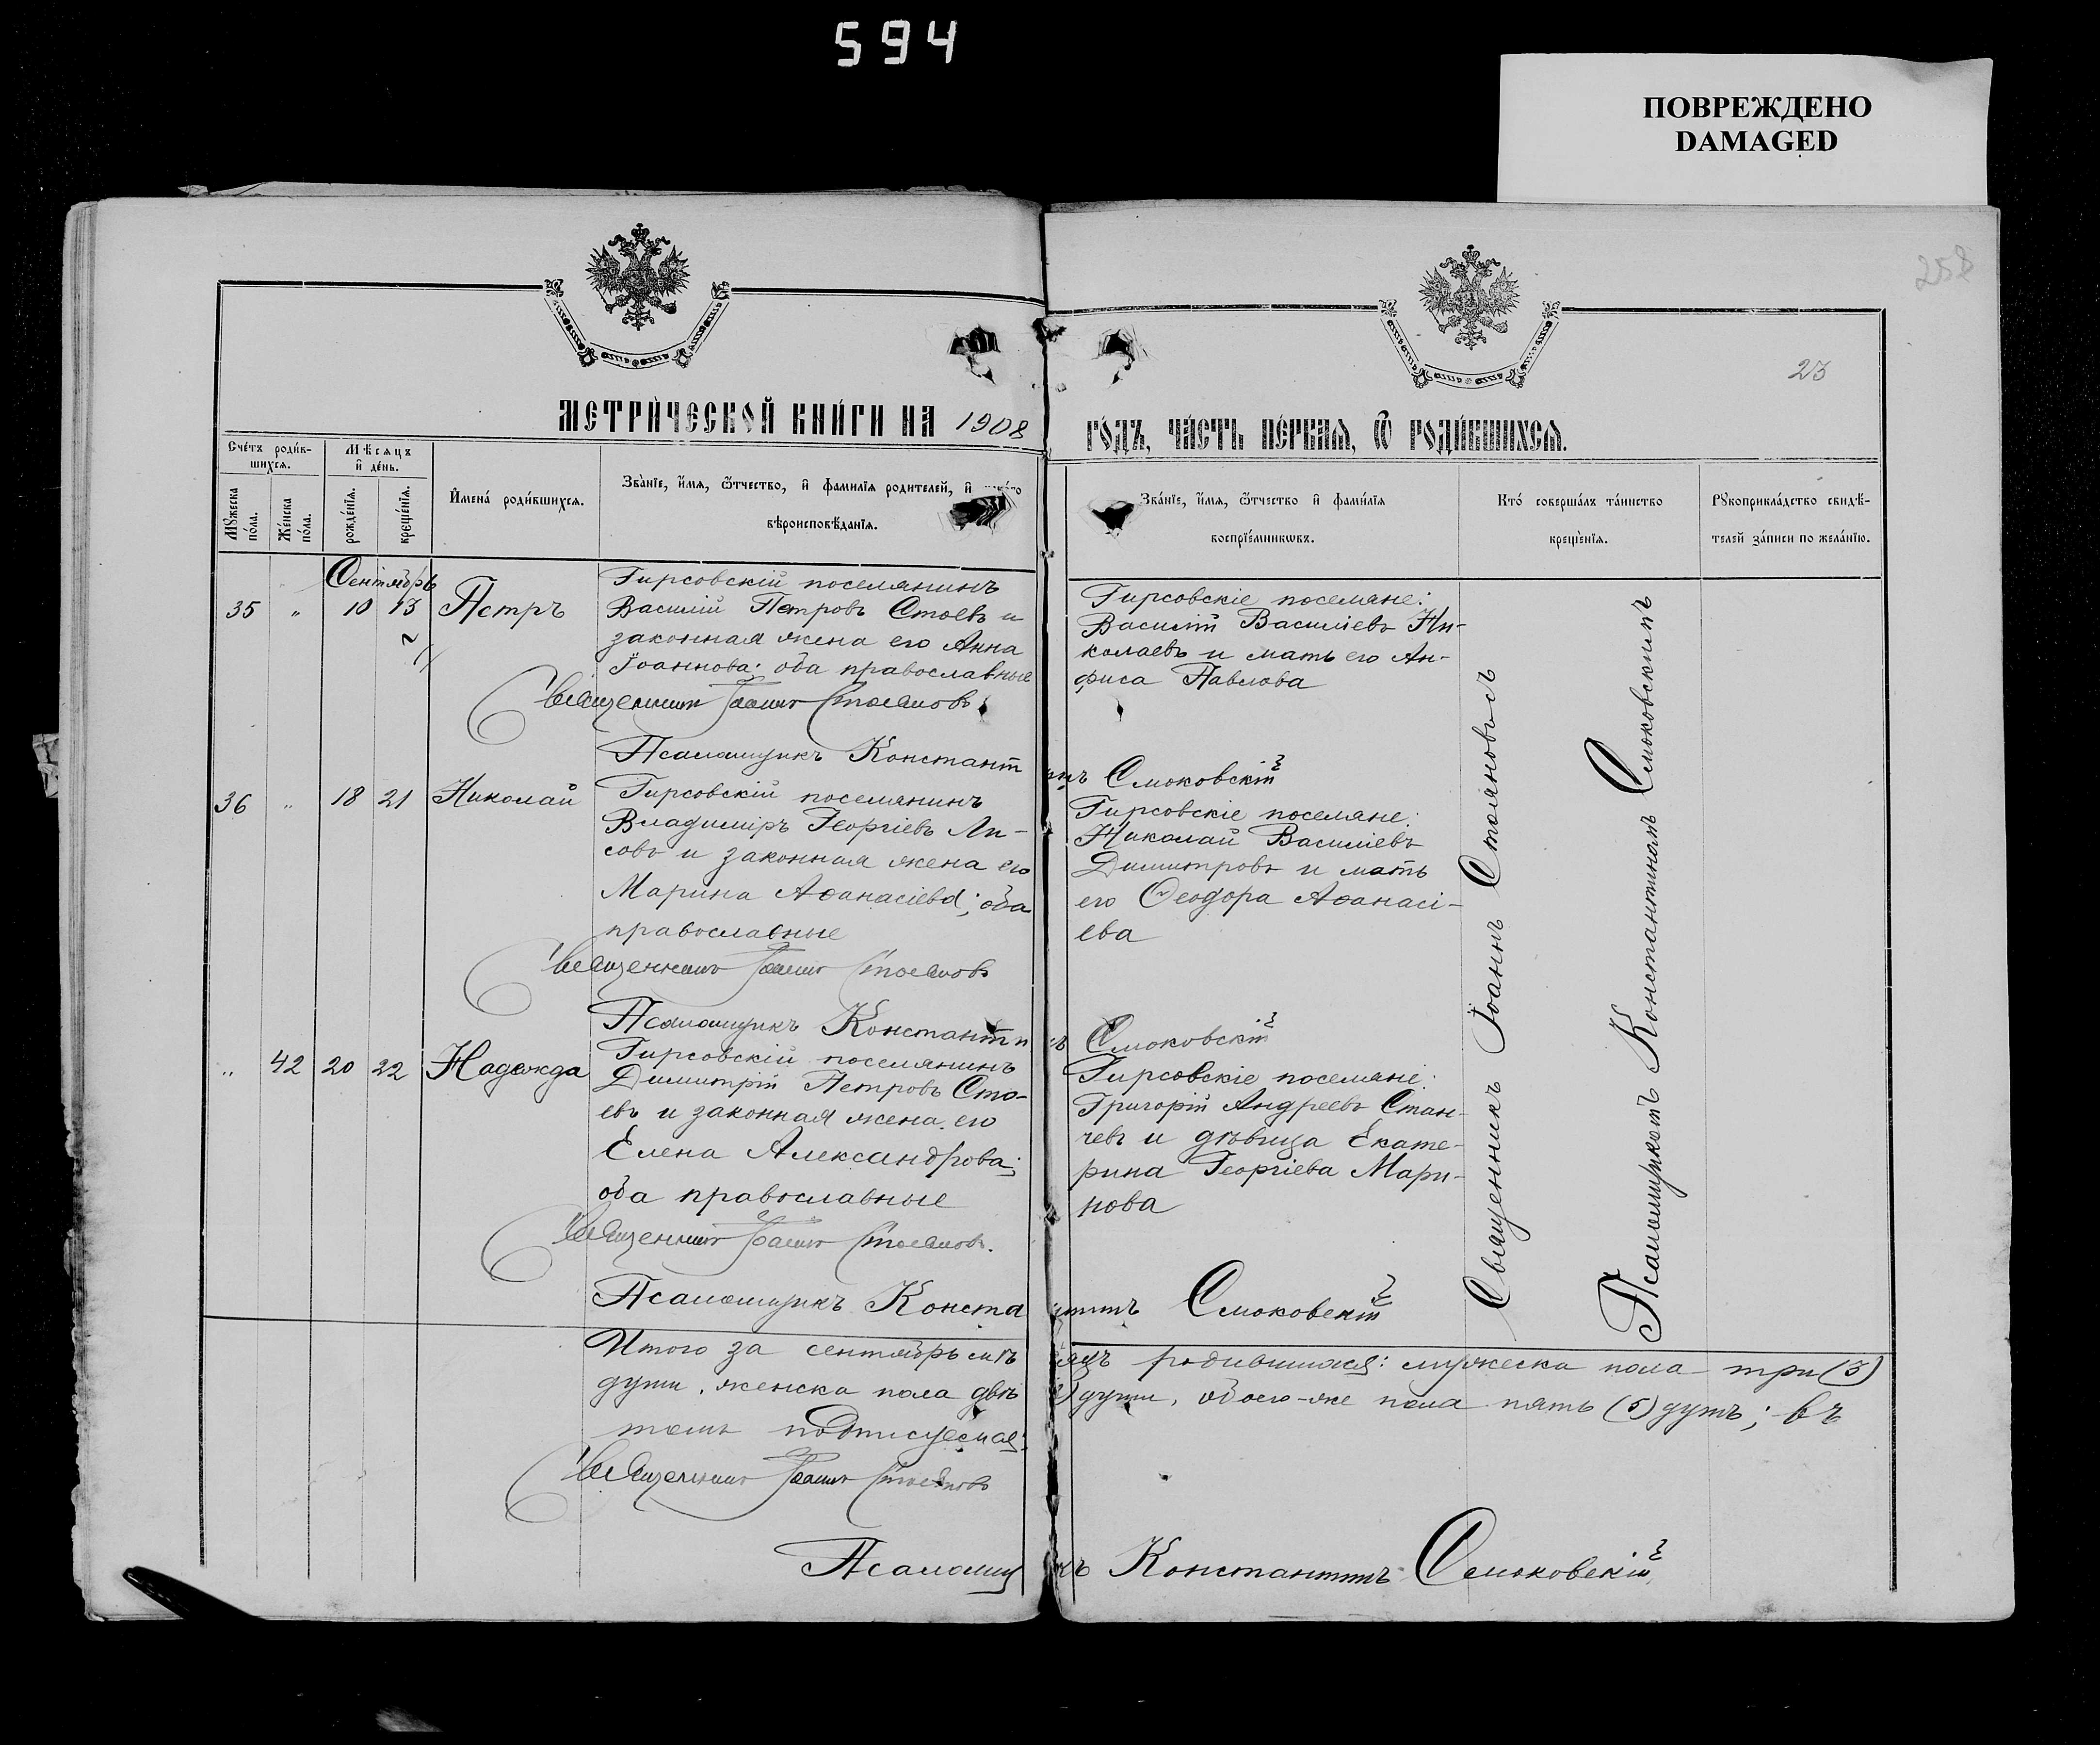 594
ПОВРЕЖДЕНО
DAMAGED
258
23
МЕТРИ́ЧЕСКОЙ КНИ́ГИ НА 1908
ГО́ДЪ, ЧА́СТЬ ПЕ́РВАЯ, Ѿ РОДИ́ВШИХСЯ.
Сче́тъ роди́в-
шихся.
Мѣсяцъ
и҆ де́нь.
Мꙋ́жеска
по́ла.
Же́нска
по́ла.
рожде́нїя.
креще́нїя.
И҆мена́ роди́вшихся.
Зва́нїе, и҆́мя, ѻ҆́тчество, и҆ фами́лїя родителей, и҆
вѣроисповѣ́данїя.
Зва́нїе, и҆́мя, ѻ҆́тчество и҆ фами́лїя
воспрїе́мникѡвъ.
Кто̀ соверша́лъ та́инство
креще́нїя.
Рꙋкоприкла́дство свидѣ́-
телей за́писи по жела́нїю.
Сентябрь
35 „ 10 13 Петръ
Гирсовскій поселянинъ
Василій Петровъ Стоевъ и
законная жена его Анна
Іоаннова; оба православные
Священникъ Іоаннъ Стояновъ
Псаломщикъ Константинъ Смоковскій
Гирсовскіе поселяне:
Василій Василіевъ Ни-
колаевъ и мать его Ан-
фиса Павлова
36 „ 18 21 Николай
Гирсовскій поселянинъ
Владимиръ Георгіевъ Ли-
совъ и законная жена его
Марина Аѳанасіева; оба
православные
Священникъ Іоаннъ Стояновъ
Псаломщикъ Константинъ Смоковскій
Гирсовскіе поселяне:
Николай Василіевъ
Димитровъ и мать
его Ѳеодора Аѳанасі-
ева
„ 42 20 22 Надежда
Гирсовскій поселянинъ
Димитрій Петровъ Сто-
евъ и законная жена его
Елена Александрова;
оба православные
Священникъ Іоаннъ Стояновъ.
Псаломщикъ Константинъ Смоковскій
Гирсовскіе поселяне:
Григорій Андреевъ Стан-
чевъ и дѣвица Екате-
рина Георгіева Мари-
нова
Священникъ Іоаннъ Стояновъ съ
Псаломщикомъ Константиномъ Смоковскимъ
Итого за сентябрь мѣсяцъ родившихся: мужеска пола три (3)
души, женска пола двѣ (2) души, обоего-же пола пять (5) душъ; въ
томъ подписуемся:
Священникъ Іоаннъ Стояновъ
Псаломщикъ Константинъ Смоковскій